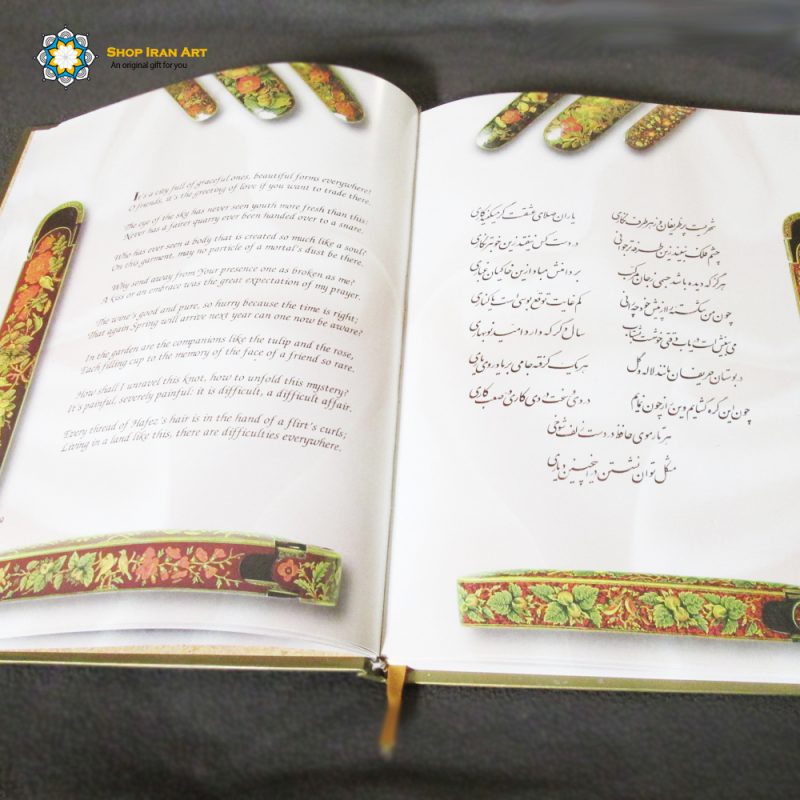 Shop Iran Art
An original gift for you
It's a city full of graceful ones, beautiful forms everywhere!
O friends, it's the greeting of love if you want to trade there.
The eye of the sky has never seen youth more fresh than this:
Never has a fairer quarry ever been handed over to a snare.
Who has ever seen a body that is created so much like a soul?
On this garment, may no particle of a mortal's dust be there.
Why send away from Your presence one as broken as me?
A kiss or an embrace was the great expectation of my prayer.
The wine's good and pure, so hurry because the time is right;
That again Spring will arrive next year can one now be aware?
In the garden are the companions like the tulip and the rose,
Each filling cup to the memory of the face of a friend so rare.
How shall I unravel this knot, how to unfold this mystery?
It's painful, severely painful: it is difficult, a difficult affair.
Every thread of Hafez's hair is in the hand of a flirt's curls;
Living in a land like this, there are difficulties everywhere.
شهریست پر ظریفان وز هر طرف نگاری یاران صلای عشقست گر میکنید کاری
چشم فلک نبیند زین طرفه تر جوانی در دست کس نیفتد زین خوبتر نگاری
هرگز که دیده باشد جسمی ز جان مرکب بر دامنش مبادا زین خاکیان غباری
چون من شکسته‌ای را از پیش خود چه رانی کم غایت توقع بوسی است یا کناری
می بیغش است دریاب وقتی خوشست بشتاب سال دگر که دارد امید نوبهاری
در بوستان حریفان مانند لاله و گل هر یک گرفته جامی بر یاد روی یاری
چون این گره گشایم وین راز چون نمایم دردی و سخت دردی کاری و صعب کاری
هر تار موی حافظ در دست زلف شوخی
مشکل توان نشستن در این چنین دیاری